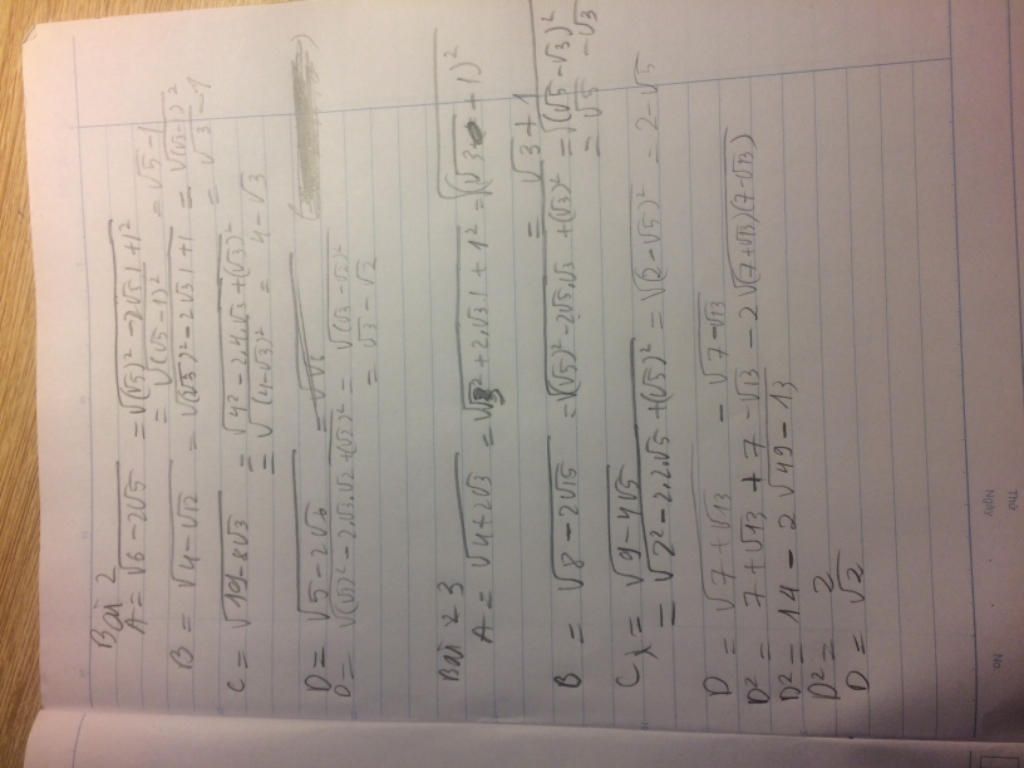 Bài 2
A = √(6 - 2√5) = √((√5)² - 2√5.1 + 1²)
= √((√5 - 1)²) = √5 - 1
B = √(4 - √12) = √((√3)² - 2√3.1 + 1) = √((√3 - 1)²)
= √3 - 1
C = √(19 - 8√3) = √(4² - 2.4√3 + (√3)²)
= √((4 - √3)²) = 4 - √3
D = √(5 - 2√6)
D = √((√3)² - 2.√3.√2 + (√2)²) = √((√3 - √2)²)
= √3 - √2
Bài 2-3
A = √(4 + 2√3) = √(√3² + 2√3.1 + 1²) = √((√3 + 1)²)
= √3 + 1
B = √(8 - 2√15) = √((√5)² - 2√5.√3 + (√3)²) = √((√5 - √3)²)
= √5 - √3
C = √(9 - 4√5)
= √(2² - 2.2.√5 + (√5)²) = √((2 - √5)²) = 2 - √5
D = √(7 + √13) - √(7 - √13)
D² = 7 + √13 + 7 - √13 - 2√((7 + √13)(7 - √13))
D² = 14 - 2√(49 - 13)
D² = 2
D = √2
Thứ
Ngày
No.